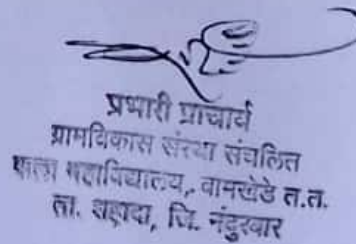 प्रभारी प्राचार्य
ग्रामविकास संस्था संचलित
कला महाविद्यालय, वामखेडे त.त.
ता. शहादा, जि. नंदुरबार